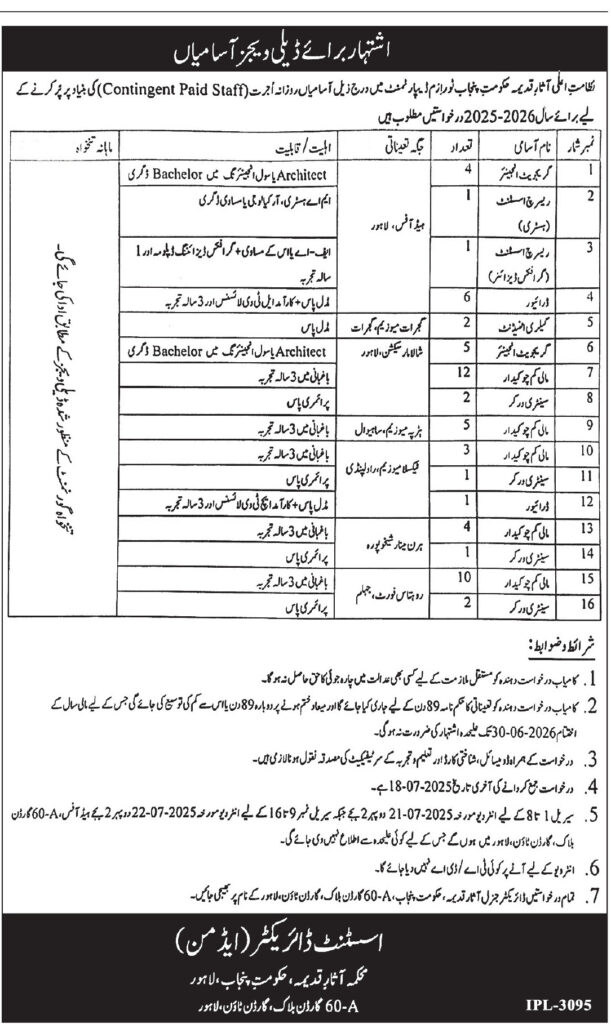 اشتہار برائے ڈیلی ویجز آسامیاں
نظامت اعلیٰ آثارِ قدیمہ حکومتِ پنجاب ٹورازم ڈیپارٹمنٹ میں درج ذیل آسامیاں روزانہ اُجرت (Contingent Paid Staff) کی بنیاد پر پُر کرنے کے
لیے برائے سال 2025-2026 درخواستیں مطلوب ہیں
نمبر شمار نام آسامی تعداد جگہ تعیناتی اہلیت/ قابلیت ماہانہ تنخواہ
1 گریجویٹ انجینئر 4 ہیڈ آفس، لاہور Architect یا سول انجینئرنگ میں Bachelor ڈگری
2 ریسرچ اسسٹنٹ (ہسٹری) 1 ایم اے ہسٹری، آرکیالوجی یا مساوی ڈگری
3 ریسرچ اسسٹنٹ (گرافکس ڈیزائنر) 1 ایف-اے یا اس کے مساوی + گرافکس ڈیزائننگ ڈپلومہ اور 1 سالہ تجربہ
4 ڈرائیور 6 مڈل پاس + کارآمد ایل ٹی وی لائسنس اور 3 سالہ تجربہ
5 گیلری اٹینڈنٹ 2 گجرات میوزیم، گجرات مڈل پاس
6 گریجویٹ انجینئر 5 شالامار سیکشن، لاہور Architect یا سول انجینئرنگ میں Bachelor ڈگری
7 مالی کم چوکیدار 12 باغبانی میں 3 سالہ تجربہ
8 سینٹری ورکر 2 پرائمری پاس
9 مالی کم چوکیدار 5 ہڑپہ میوزیم، ساہیوال باغبانی میں 3 سالہ تجربہ
10 مالی کم چوکیدار 3 ٹیکسلا میوزیم، راولپنڈی باغبانی میں 3 سالہ تجربہ
11 سینٹری ورکر 1 پرائمری پاس
12 ڈرائیور 1 مڈل پاس + کارآمد ایچ ٹی وی لائسنس اور 3 سالہ تجربہ
13 مالی کم چوکیدار 4 ہرن مینار شیخوپورہ باغبانی میں 3 سالہ تجربہ
14 سینٹری ورکر 1 پرائمری پاس
15 مالی کم چوکیدار 10 روہتاس فورٹ، جہلم باغبانی میں 3 سالہ تجربہ
16 سینٹری ورکر 2 پرائمری پاس
تنخواہ گورنمنٹ کے منظور شدہ ڈیلی ویجز کے مطابق ادا کی جائے گی۔
شرائط و ضوابط:
1. کامیاب درخواست دہندہ کو مستقل ملازمت کے لیے کسی بھی عدالت میں چارہ جوئی کا حق حاصل نہ ہوگا۔
2. کامیاب درخواست دہندہ کو تعیناتی کا حکم نامہ 89 دن کے لیے جاری کیا جائے گا اور میعاد ختم ہونے پر دوبارہ 89 دن یا اس سے کم کی توسیع کی جائے گی جس کے لیے مالی سال کے
اختتام 30-06-2026 تک علیحدہ اشتہار کی ضرورت نہ ہوگی۔
3. درخواست کے ہمراہ ڈومیسائل، شناختی کارڈ اور تعلیم و تجربہ کے سرٹیفکیٹ کی مصدقہ نقول ہونا لازمی ہیں۔
4. درخواست جمع کروانے کی آخری تاریخ 18-07-2025 ہے۔
5. سیریل 1 تا 8 کے لیے انٹرویو مورخہ 21-07-2025 دوپہر 2 بجے جبکہ سیریل نمبر 9 تا 16 کے لیے انٹرویو مورخہ 22-07-2025 دوپہر 2 بجے ہیڈ آفس، 60-A گارڈن
بلاک، گارڈن ٹاؤن، لاہور میں ہوں گے جس کے لیے کوئی علیحدہ سے اطلاع نہیں دی جائے گی۔
6. انٹرویو کے لیے آنے پر کوئی ٹی اے/ ڈی اے نہیں دیا جائے گا۔
7. تمام درخواستیں ڈائریکٹر جنرل آثارِ قدیمہ، حکومتِ پنجاب، 60-A گارڈن بلاک، گارڈن ٹاؤن، لاہور کے نام پر بھیجی جائیں۔
اسسٹنٹ ڈائریکٹر (ایڈمن)
محکمہ آثارِ قدیمہ، حکومتِ پنجاب، لاہور
60-A گارڈن بلاک، گارڈن ٹاؤن، لاہور
IPL-3095